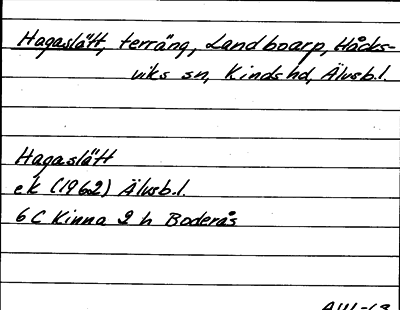 Hagaslätt, terräng, Landboarp, Håcks-
viks sn, Kinds hd, Älvsb.l.
Hagaslätt
ek (1962) Älvsb.l.
6 C Kinna 2 h Boderås